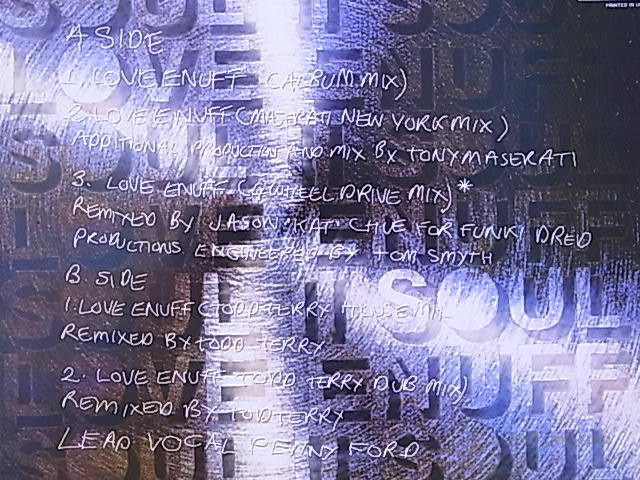 PRINTED IN U
A SIDE
1. LOVE ENUFF (ALBUM MIX)
2. LOVE ENUFF (MASERATI NEW YORK MIX)
ADDITIONAL PRODUCTION AND MIX BY TONY MASERATI
3. LOVE ENUFF (4 WHEEL DRIVE MIX) *
REMIXED BY JASON KAT CHUE FOR FUNKI DRED
PRODUCTIONS. ENGINEERED BY TOM SMYTH
B. SIDE
1. LOVE ENUFF (TODD TERRY HOUSE MIX
REMIXED BY TODD TERRY
2. LOVE ENUFF TODD TERRY DUB MIX)
REMIXED BY TODD TERRY
LEAD VOCAL PENNY FORD
SOUL
ENUFF
SOUL